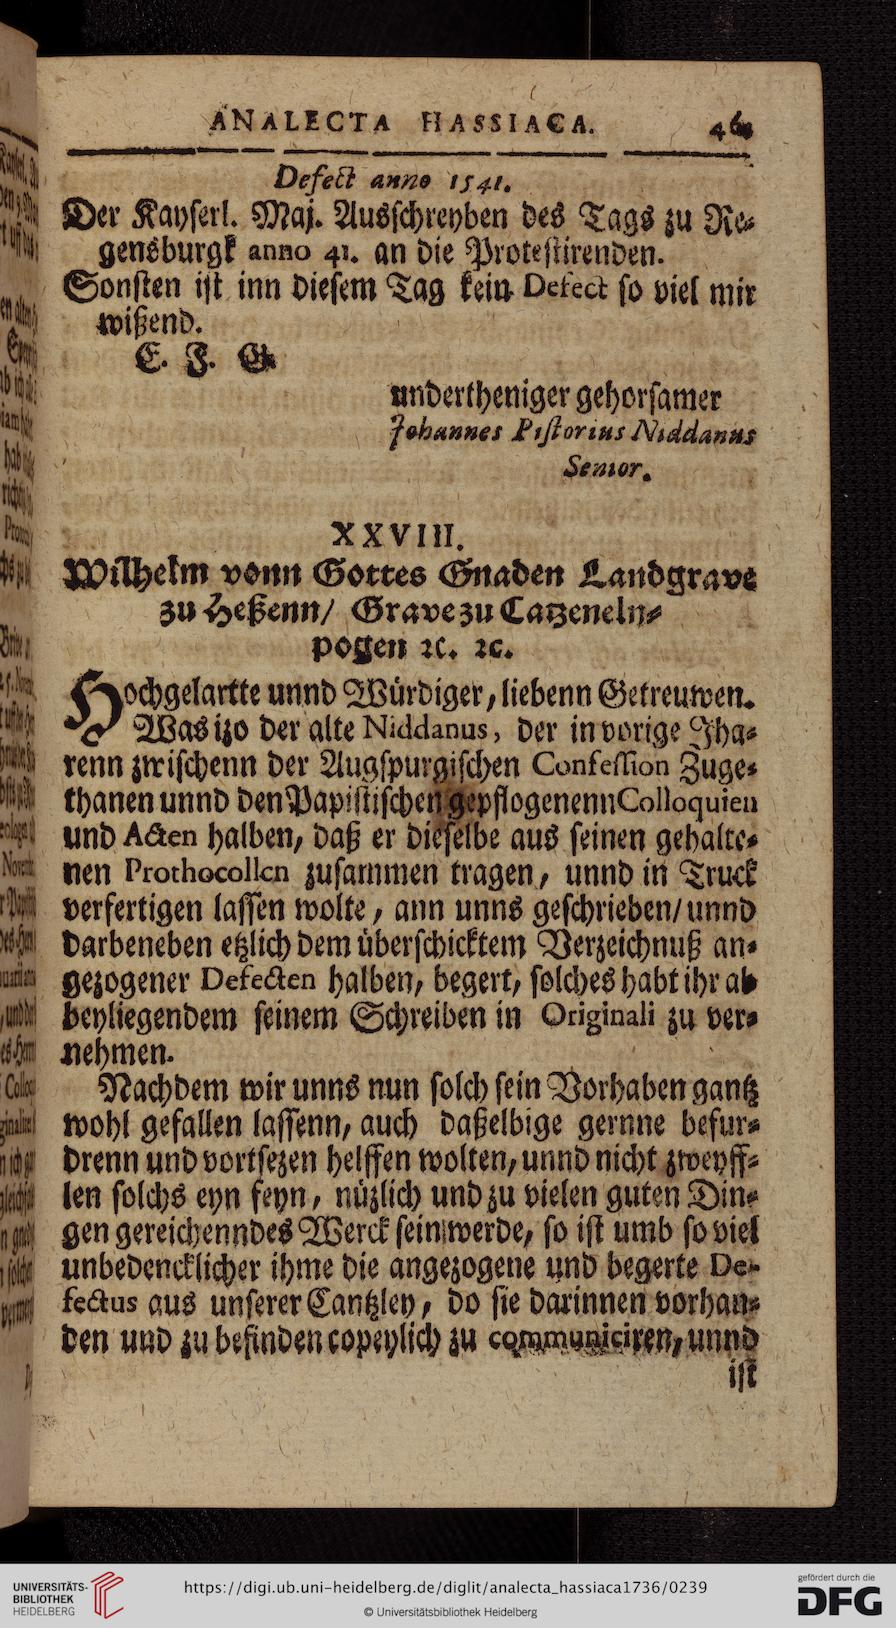 ANALECTA HASSIACA.
Defect anno 1541.
Der Kayſerl. Maj. Ausſchreyben des Tags zu Re⸗
gensburgk anno 41. an die Proteſtirenden.
Sonſten iſt inn dieſem Tag kein Defect ſo viel mir
wißend.
E. F. G.
undertheniger gehorſamer
Johannes Piſtorius Niddanus
Senior.
XXVIII.
Wilhelm vonn Gottes Gnaden Landgrave
zu Heßenn/ Grave zu Catzeneln⸗
pogen ꝛc. ꝛc.
Hochgelartte unnd Würdiger, liebenn Getreuwen.
Was izo der alte Niddanus, der in vorige Jha⸗
renn zwiſchenn der Augſpurgiſchen Confeſſion Zuge⸗
thanen unnd den Papiſtiſchen gepflogenenn Colloquien
und Acten halben, daß er dieſelbe aus ſeinen gehalte⸗
nen Prothocollen zuſammen tragen, unnd in Truck
verfertigen laſſen wolte, ann unns geſchrieben/ unnd
darbeneben etzlich dem überſchicktem Verzeichnuß an⸗
gezogener Defecten halben, begert, ſolches habt ihr ab
beyliegendem ſeinem Schreiben in Originali zu ver⸗
nehmen.
Nachdem wir unns nun ſolch ſein Vorhaben gantz
wohl gefallen laſſenn, auch daßelbige gernne befur⸗
drenn und vortſezen helffen wolten, unnd nicht zweyff⸗
len ſolchs eyn feyn, nüzlich und zu vielen guten Din⸗
gen gereichenndes Werck ſein werde, ſo iſt umb ſo viel
unbedencklicher ihme die angezogene und begerte De⸗
fectus aus unſerer Cantzley, do ſie darinnen vorhan⸗
den uud zu befinden copeylich zu communiciren, unnd
iſt
UNIVERSITÄTS-
BIBLIOTHEK
HEIDELBERG
https://digi.ub.uni-heidelberg.de/diglit/analecta_hassiaca1736/0239
© Universitätsbibliothek Heidelberg
gefördert durch die
DFG